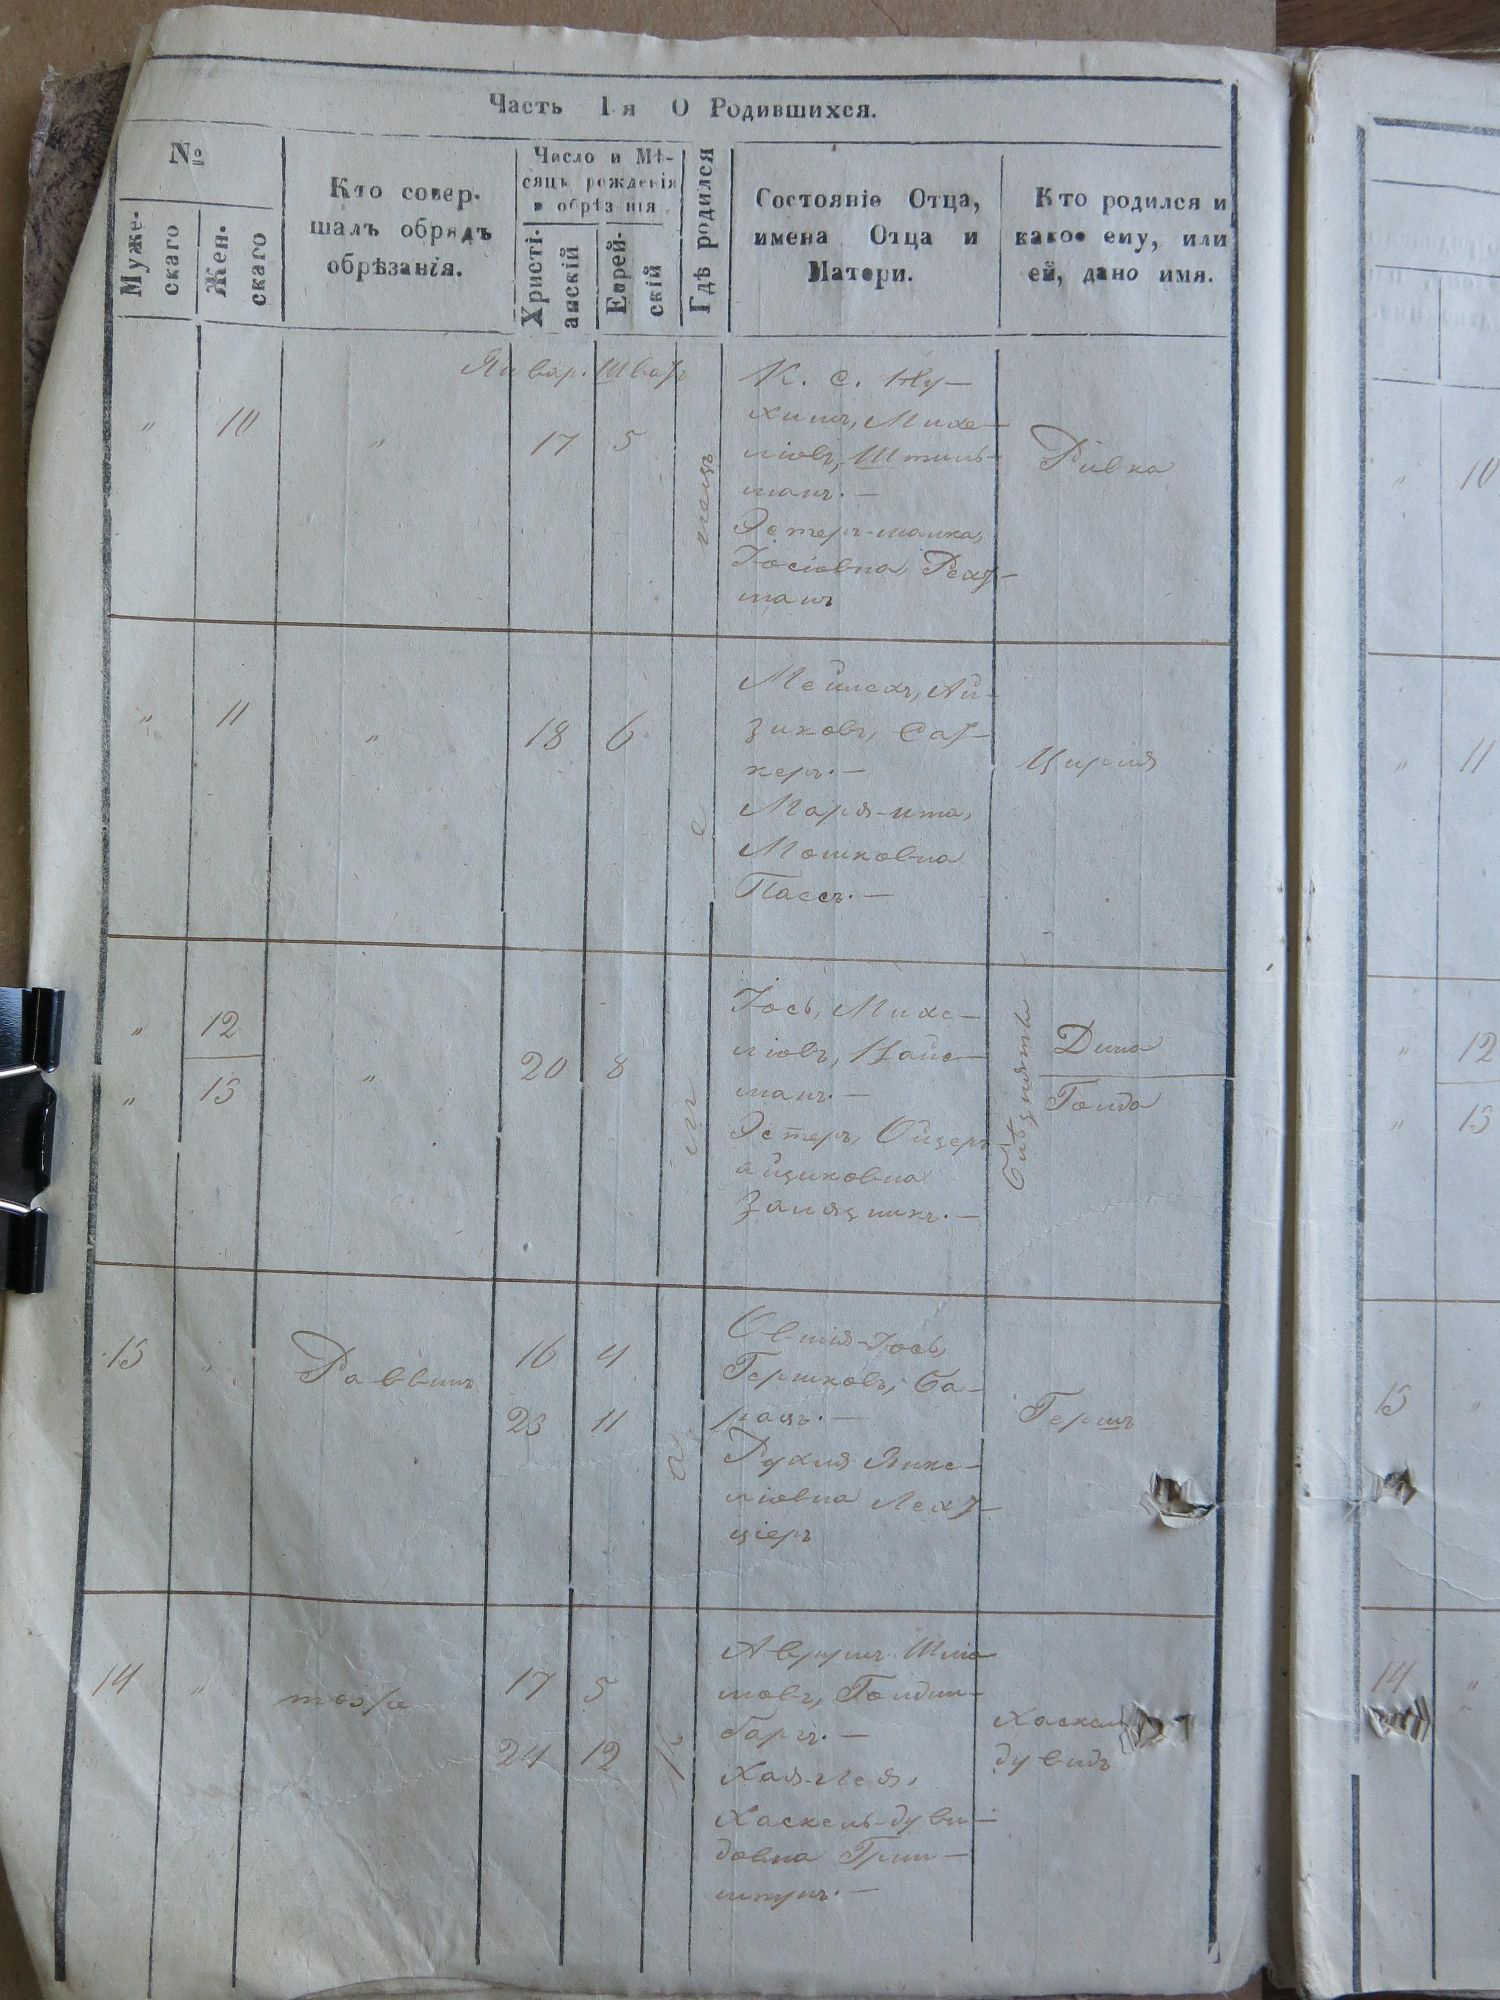 Часть 1-я О Родившихся.
№
Муже-
скаго
Жен-
скаго
Кто совер-
шалъ обрядъ
обрѣзанія.
Число и Мѣ-
сяцъ рожденія
и обрѣзанія
Христі-
анскій
Еврей-
скій
Гдѣ родился
Состояніе Отца,
имена Отца и
Матери.
Кто родился и
какое ему, или
ей, дано имя.
Январ. Шватъ
" 10 " 17 5
К. с. Ну-
химъ, Михе-
ліовъ, Штиль-
манъ. —
Эстеръ-малка,
Іосіовна Рехт-
манъ
Ривка
" 11 " 18 6
Мейлехъ, Ай-
зиковъ, Сат-
керъ. —
Маря-ита,
Мошковна
Пассъ. —
Цирля
" 12
" 13
" 20 8
Іось, Михе-
ліовъ, Цайс-
манъ. —
Эстеръ, Ойзеръ
айзиковна
Близнята
Дина
Голда
13 " Раввинъ
16 4
23 11
Овшія-Іось,
Гершковъ, Ба-
рацъ. —
Рухля
ліовна Лехт-
ціеръ
Гершъ
14 " тоже
17 5
24 12
Аврумъ Шлiо-
мовъ, Голдин-
баргъ. —
Хая-Лея,
Хаскель-дуви-
довна Грин-
штунъ. —
Хаскель
дувидъ
10
11
12
13
13
14